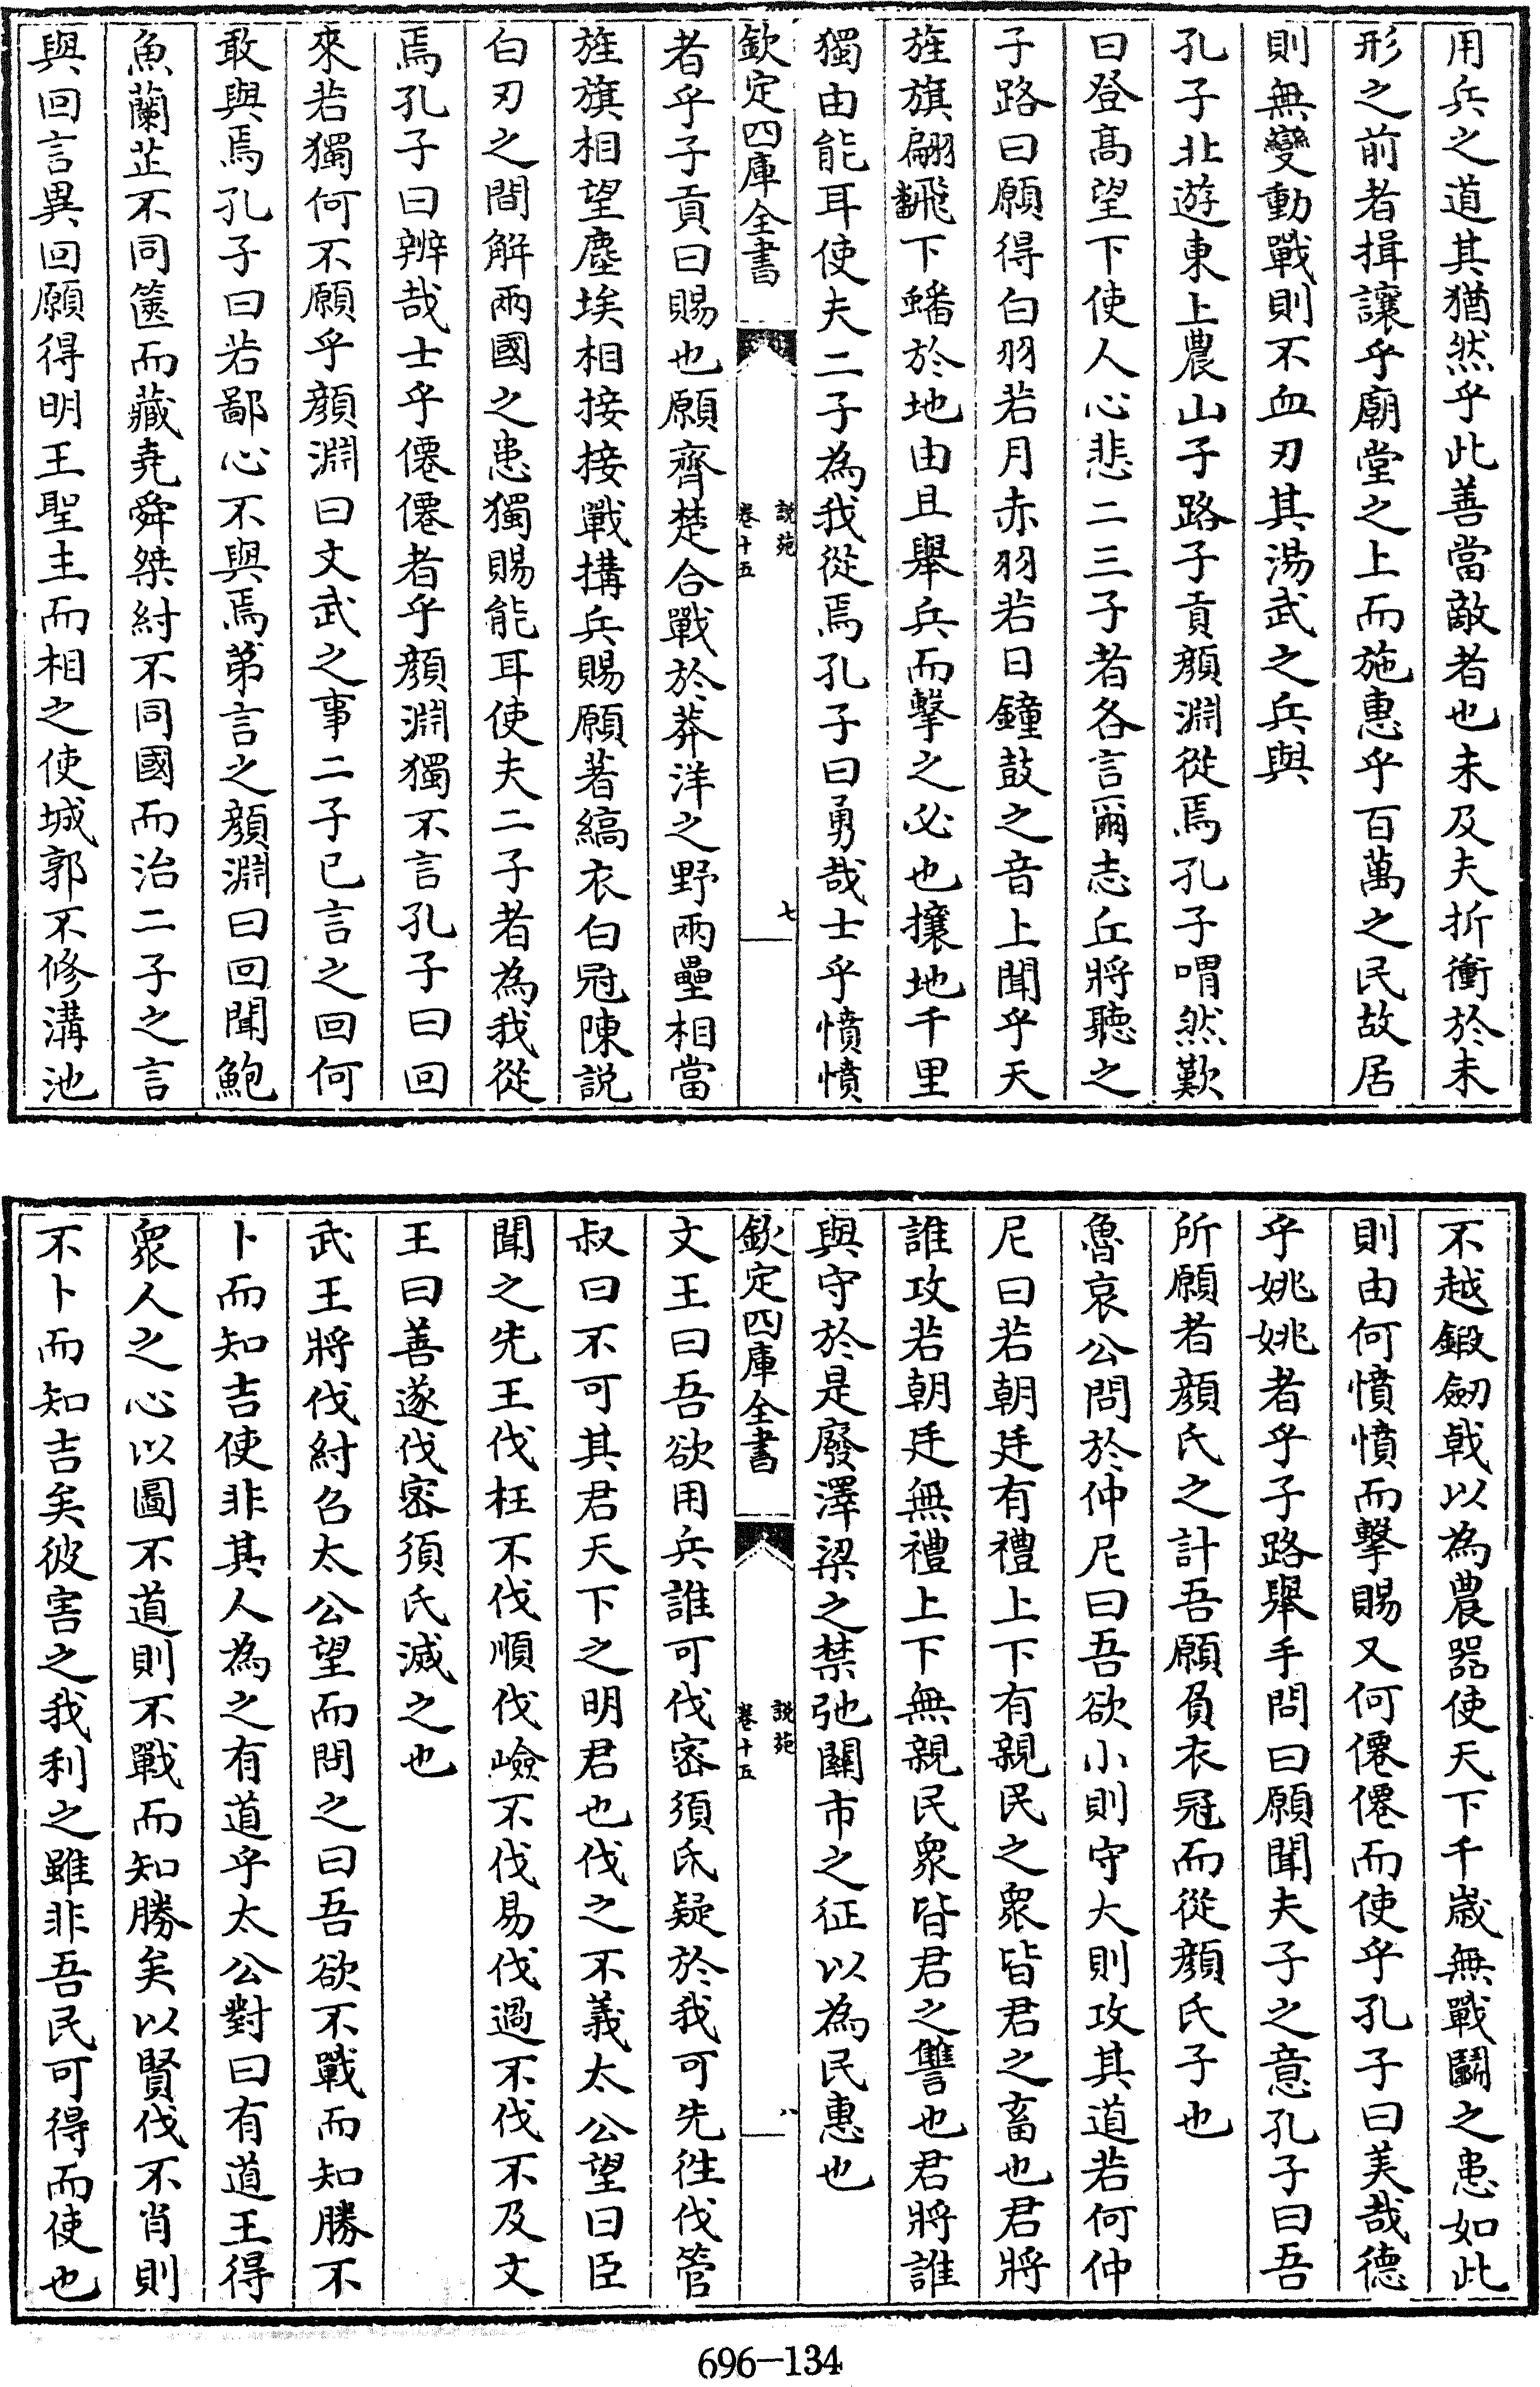 用兵之道其猶然乎此善當敵者也未及夫折衝於未
形之前者揖讓乎廟堂之上而施惠乎百萬之民故居
則無變動戰則不血刃其湯武之兵與
孔子北遊東上農山子路子貢顔淵從焉孔子喟然歎
曰登髙望下使人心悲二三子者各言爾志丘將聽之
子路曰願得白羽若月赤羽若日鐘鼓之音上聞乎天
旌旗翩飜下蟠於地由且舉兵而擊之必也攘地千里
獨由能耳使夫二子為我從焉孔子曰勇哉士乎憤憤
欽定四庫全書
說苑
卷十五
七
者乎子貢曰賜也願齊楚合戰於莽洋之野兩壘相當
旌旗相望塵埃相接接戰搆兵賜願著縞衣白冠陳説
白刃之間解兩國之患獨賜能耳使夫二子者為我從
焉孔子曰辨哉士乎僊僊者乎顔淵獨不言孔子曰回
來若獨何不願乎顔淵曰文武之事二子已言之回何
敢與焉孔子曰若鄙心不與焉苐言之顔淵曰回聞鮑
魚蘭芷不同篋而藏堯舜桀紂不同國而治二子之言
與回言異回願得明王聖主而相之使城郭不修溝池
不越鍛劒戟以為農器使天下千嵗無戰鬭之患如此
則由何憤憤而擊賜又何僊僊而使乎孔子曰美哉德
乎姚姚者乎子路舉手問曰願聞夫子之意孔子曰吾
所願者顔氏之計吾願負衣冠而從顔氏子也
魯哀公問於仲尼曰吾欲小則守大則攻其道若何仲
尼曰若朝廷有禮上下有親民之衆皆君之畜也君將
誰攻若朝廷無禮上下無親民衆皆君之讐也君將誰
與守於是廢澤梁之禁弛關市之征以為民惠也
欽定四庫全書
說苑
卷十五
八
文王曰吾欲用兵誰可伐密須氏疑於我可先徃伐管
叔曰不可其君天下之明君也伐之不義太公望曰臣
聞之先王伐枉不伐順伐嶮不伐易伐過不伐不及文
王曰善遂伐密須氏滅之也
武王將伐紂召太公望而問之曰吾欲不戰而知勝不
卜而知吉使非其人為之有道乎太公對曰有道王得
衆人之心以圖不道則不戰而知勝矣以賢伐不肖則
不卜而知吉矣彼害之我利之雖非吾民可得而使也
696-134